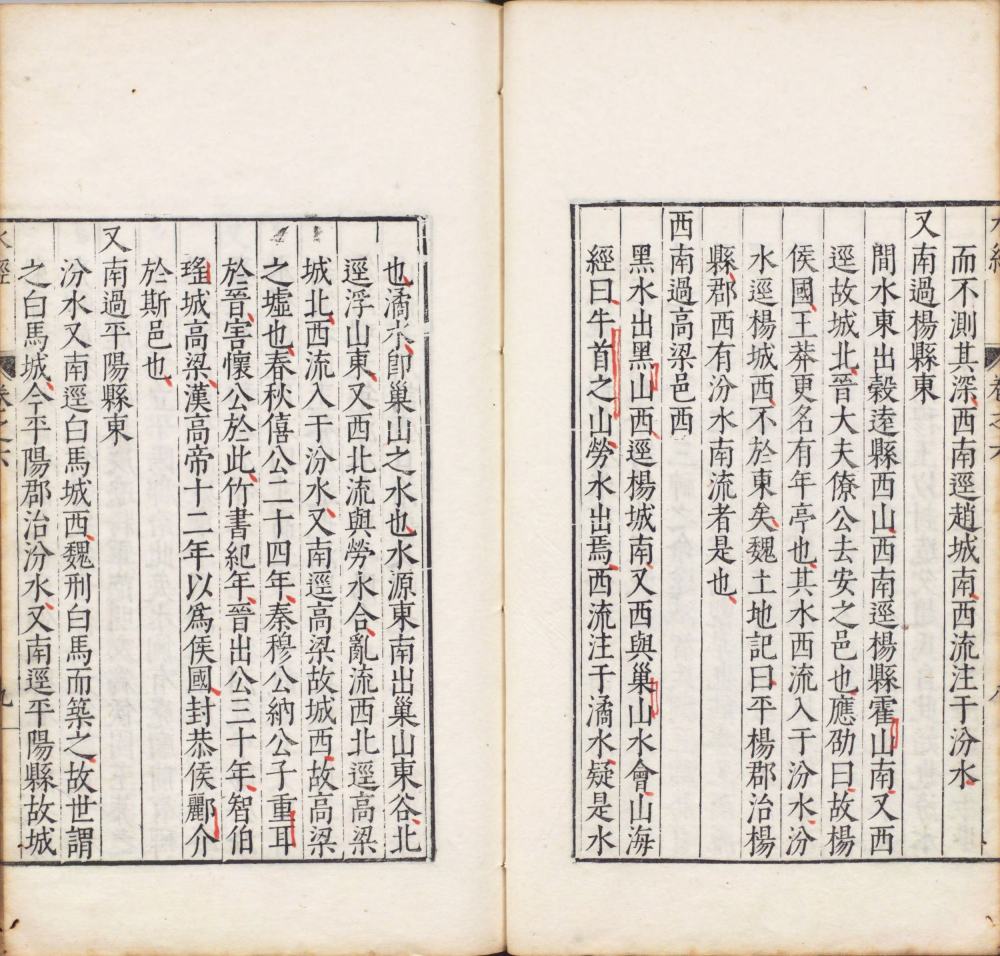 而不測其深西南逕趙城南西流注于汾水
又南過楊縣東
間水東出穀逺縣西山西南逕楊縣霍山南又西
逕故城北晉大夫僚公去安之邑也應劭曰故楊
侯國王莽更名有年亭也其水西流入于汾水汾
水逕楊城西不於東矣魏土地記曰平楊郡治楊
縣郡西有汾水南流者是也
西南過高梁邑西
黑水出黑山西逕楊城南又西與巢山水會山海
經曰牛首之山勞水出焉西流注于潏水疑是水
也潏水卽巢山之水也水源東南出巢山東谷北
逕浮山東又西北流與勞水合亂流西北逕高梁
城北西流入于汾水又南逕高梁故城西故高梁
之墟也春秋僖公二十四年秦穆公納公子重耳
於晉害懷公於此竹書紀年晉出公三十年智伯
瑤城高梁漢高帝十二年以爲侯國封恭侯酈介
於斯邑也
又南過平陽縣東
汾水又南逕白馬城西魏刑白馬而築之故世謂
之白馬城今平陽郡治汾水又南逕平陽縣故城
水經 卷之六 九